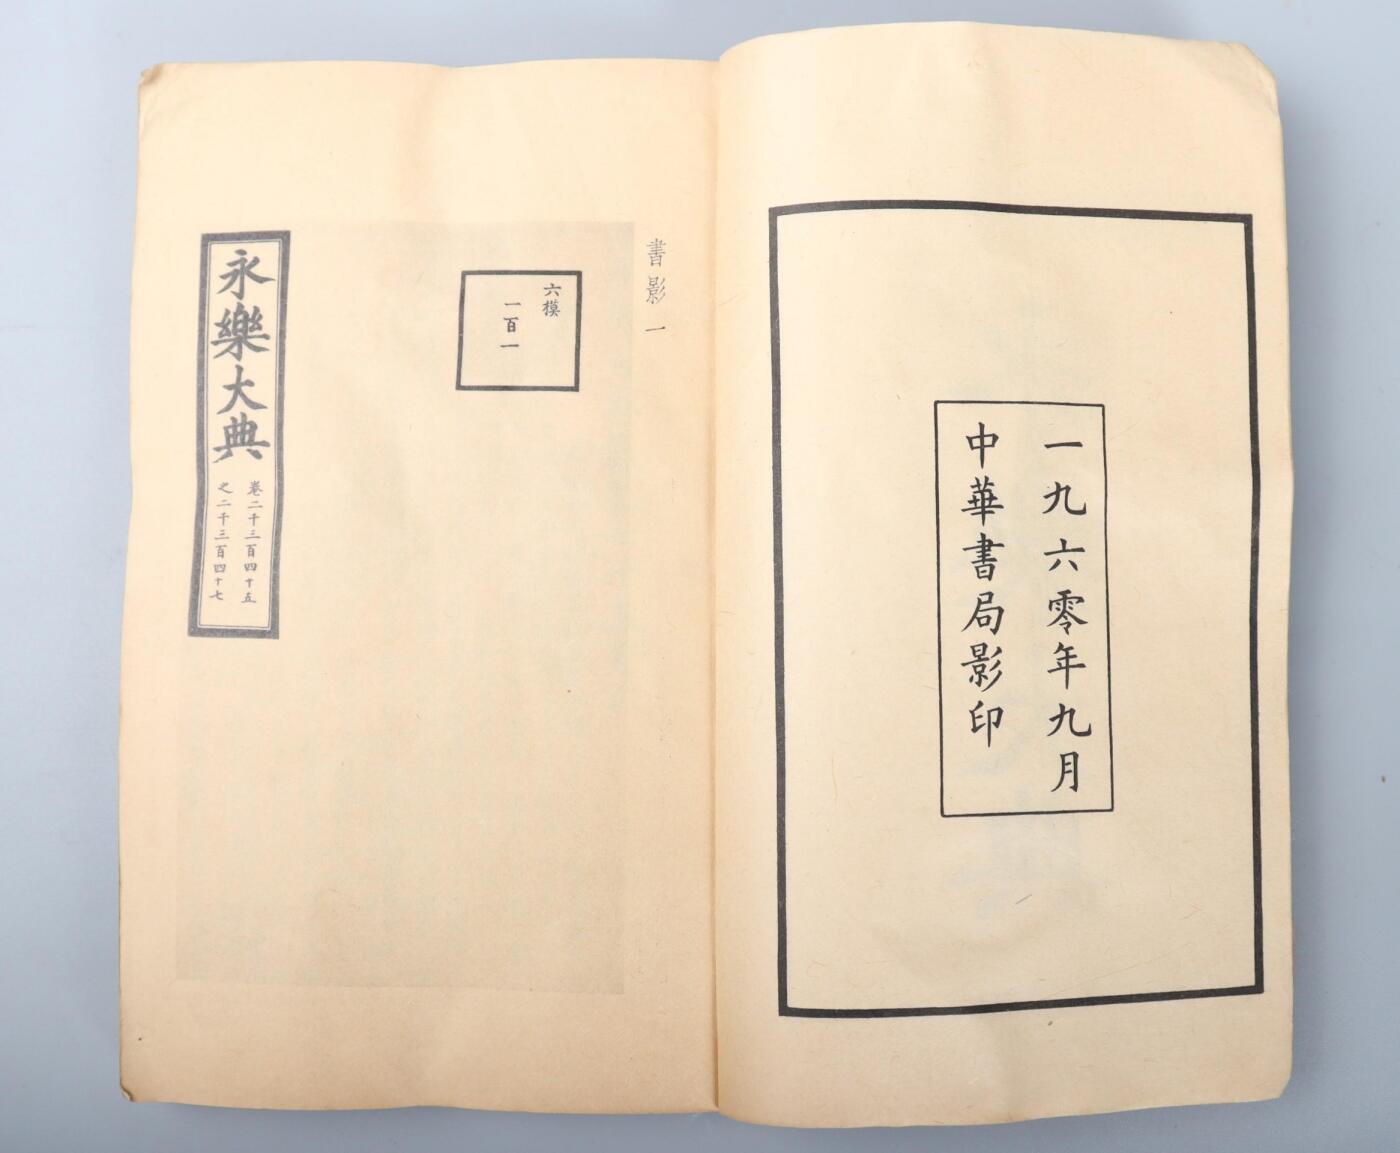 一九六零年九月
中華書局影印
書影一
六模
一百一
永樂大典
卷二千三百四十五
之二千三百四十七